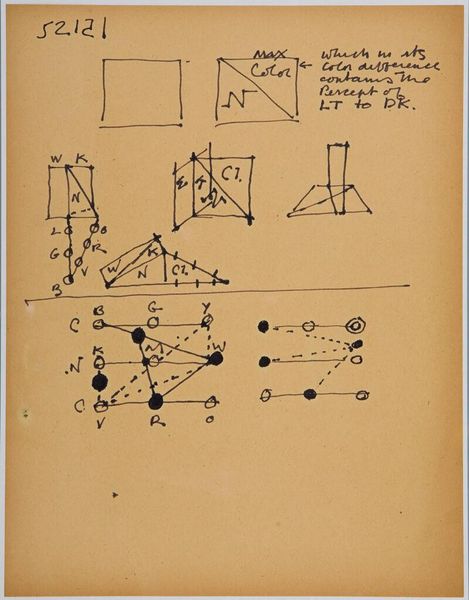 52121
MAX
Color
N
which in its
color difference
contains the
Percept of
LT to DK.
W K
N
L B
G R
V
B
C1.
W K
N C1.
B G Y
C
K N W
N
C
V R O